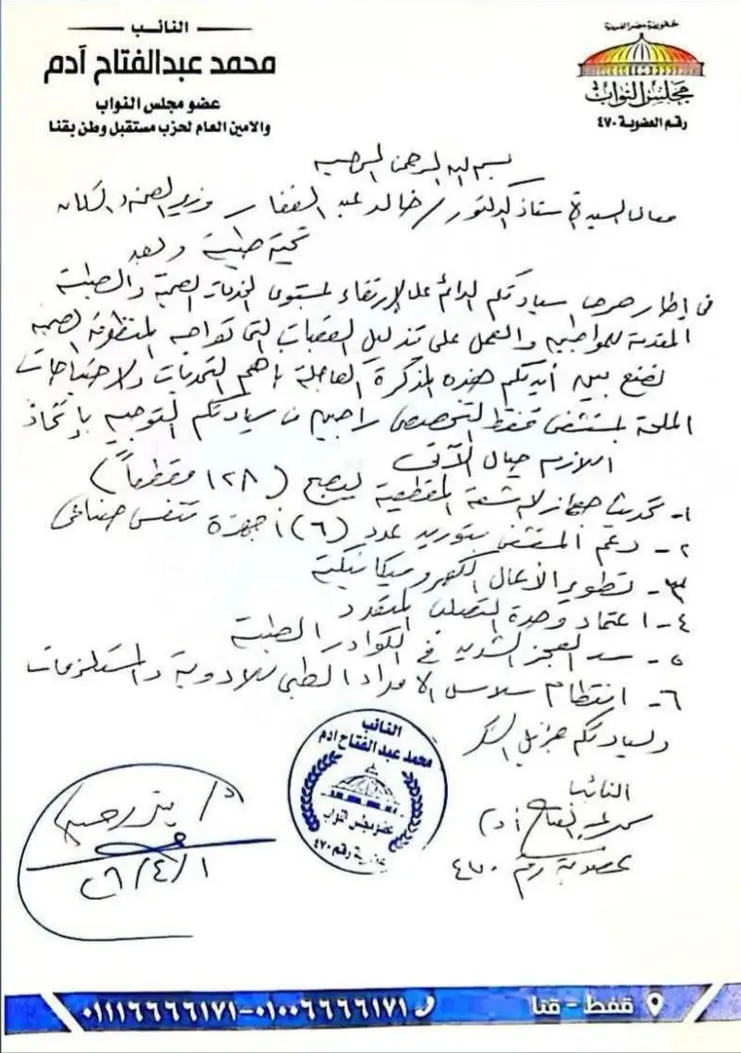 النائب
محمد عبدالفتاح آدم
عضو مجلس النواب
والامين العام لحزب مستقبل وطن بقنا
جمهورية مصر العربية
مجلس النواب
رقم العضوية ٤٧٠
بسم الله الرحمن الرحيم
معالى السيد الأستاذ الدكتور / خالد عبد الغفار وزير الصحة والسكان
تحية طيبة وبعد
فى إطار حرص سيادتكم الدائم على الإرتقاء لمستوى الخدمات الصحية والطبية
المقدمة للمواطنين والعمل على تذليل العقبات التى تواجه المنظومة الصحية
نضع بين أيديكم هذه المذكرة العاجلة بأهم التحديات والاحتياجات
الملحة لمستشفى قفط التخصصى راجين من سيادتكم التوجيه بإتخاذ
اللازم حيال الآتى
١- تحديث جهاز الاشعة المقطعية ليصبح (١٢٨ مقطعاً)
٢- دعم المستشفى بتوريد عدد (٦) أجهزة تنفس صناعى
٣- تطوير الأعمال الكهروميكانيكية
٤- اعتماد وحدة
٥- سد العجز الشديد فى الكوادر الطبية
٦- انتظام سلاسل الامداد الطبى للادوية والمستلزمات
ولسيادتكم جزيل الشكر
النائب
محمد عبد الفتاح آدم
عضوية رقم ٤٧٠
النائب
محمد عبد الفتاح آدم
عضو مجلس النواب
عضوية رقم ٤٧٠
د/
٢٦/٤/١
قفط - قنا
٠١١١٦٦٦٦١٧١-٠١٠٠٦٦٦٦١٧١